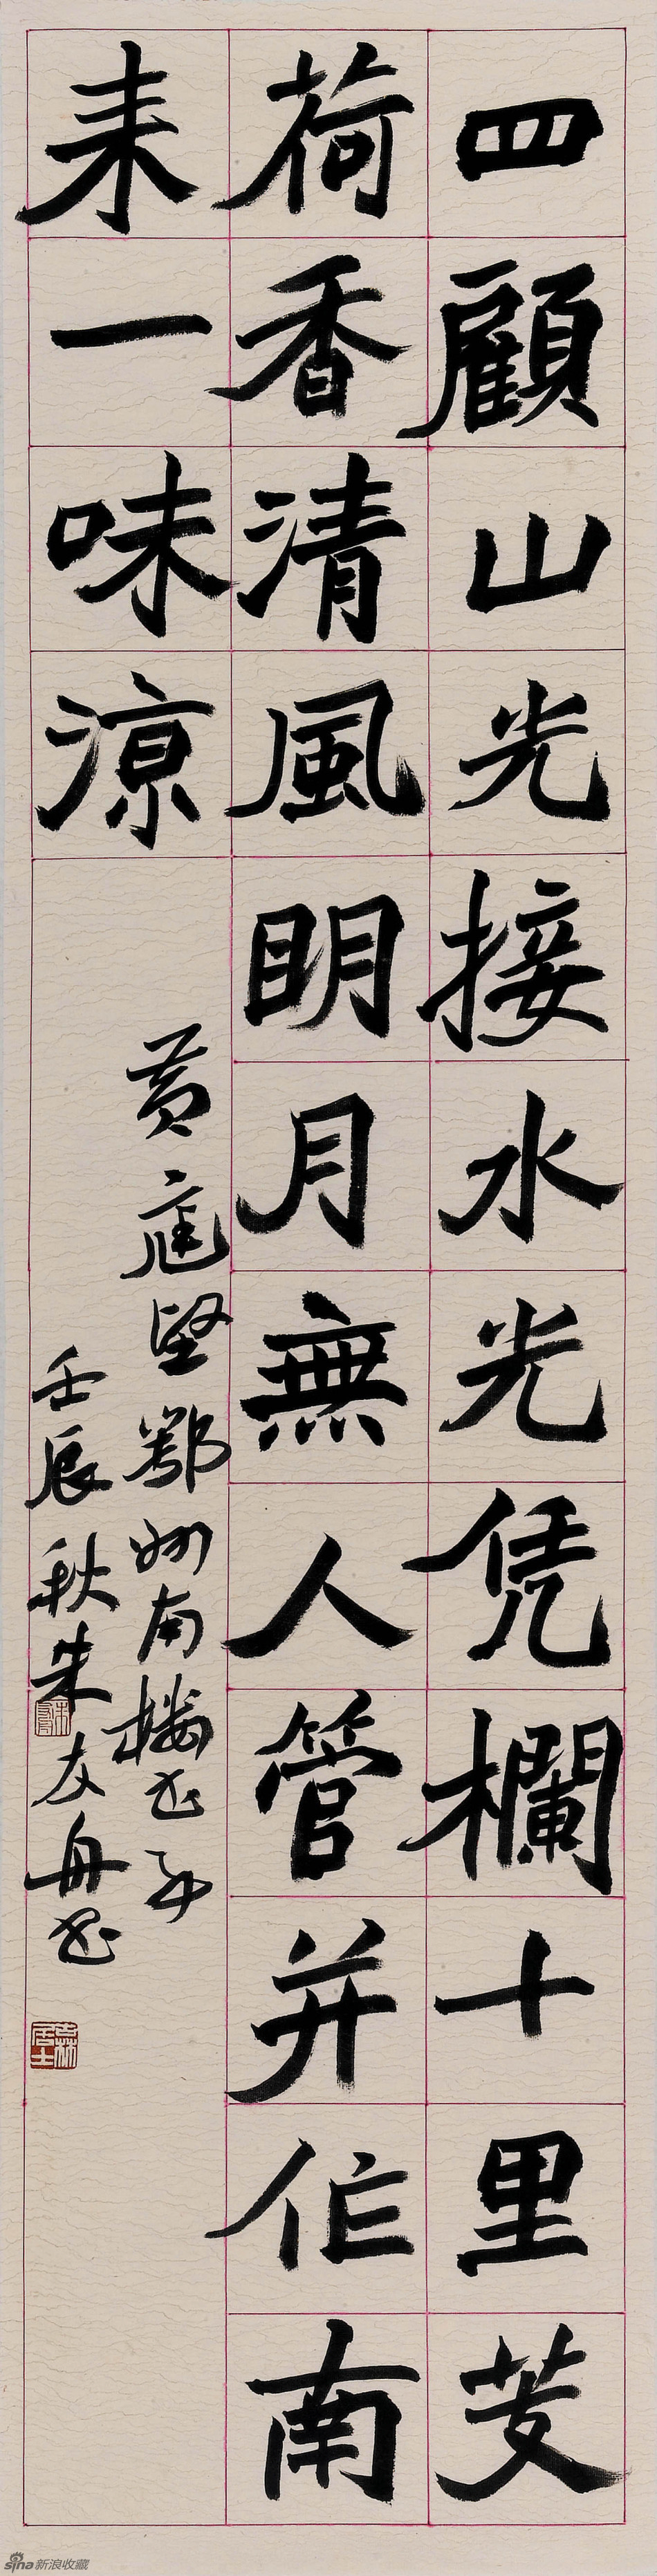 四顧山光接水光凭欄十里芰
荷香清風明月無人管并作南
来一味凉
黄庭堅鄂州南楼书事
壬辰秋朱友舟书
sina新浪收藏